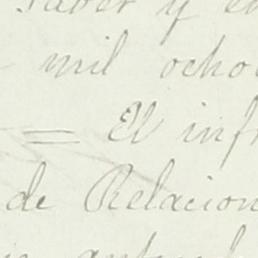 y
mil ocho
= El inf
de Relacion